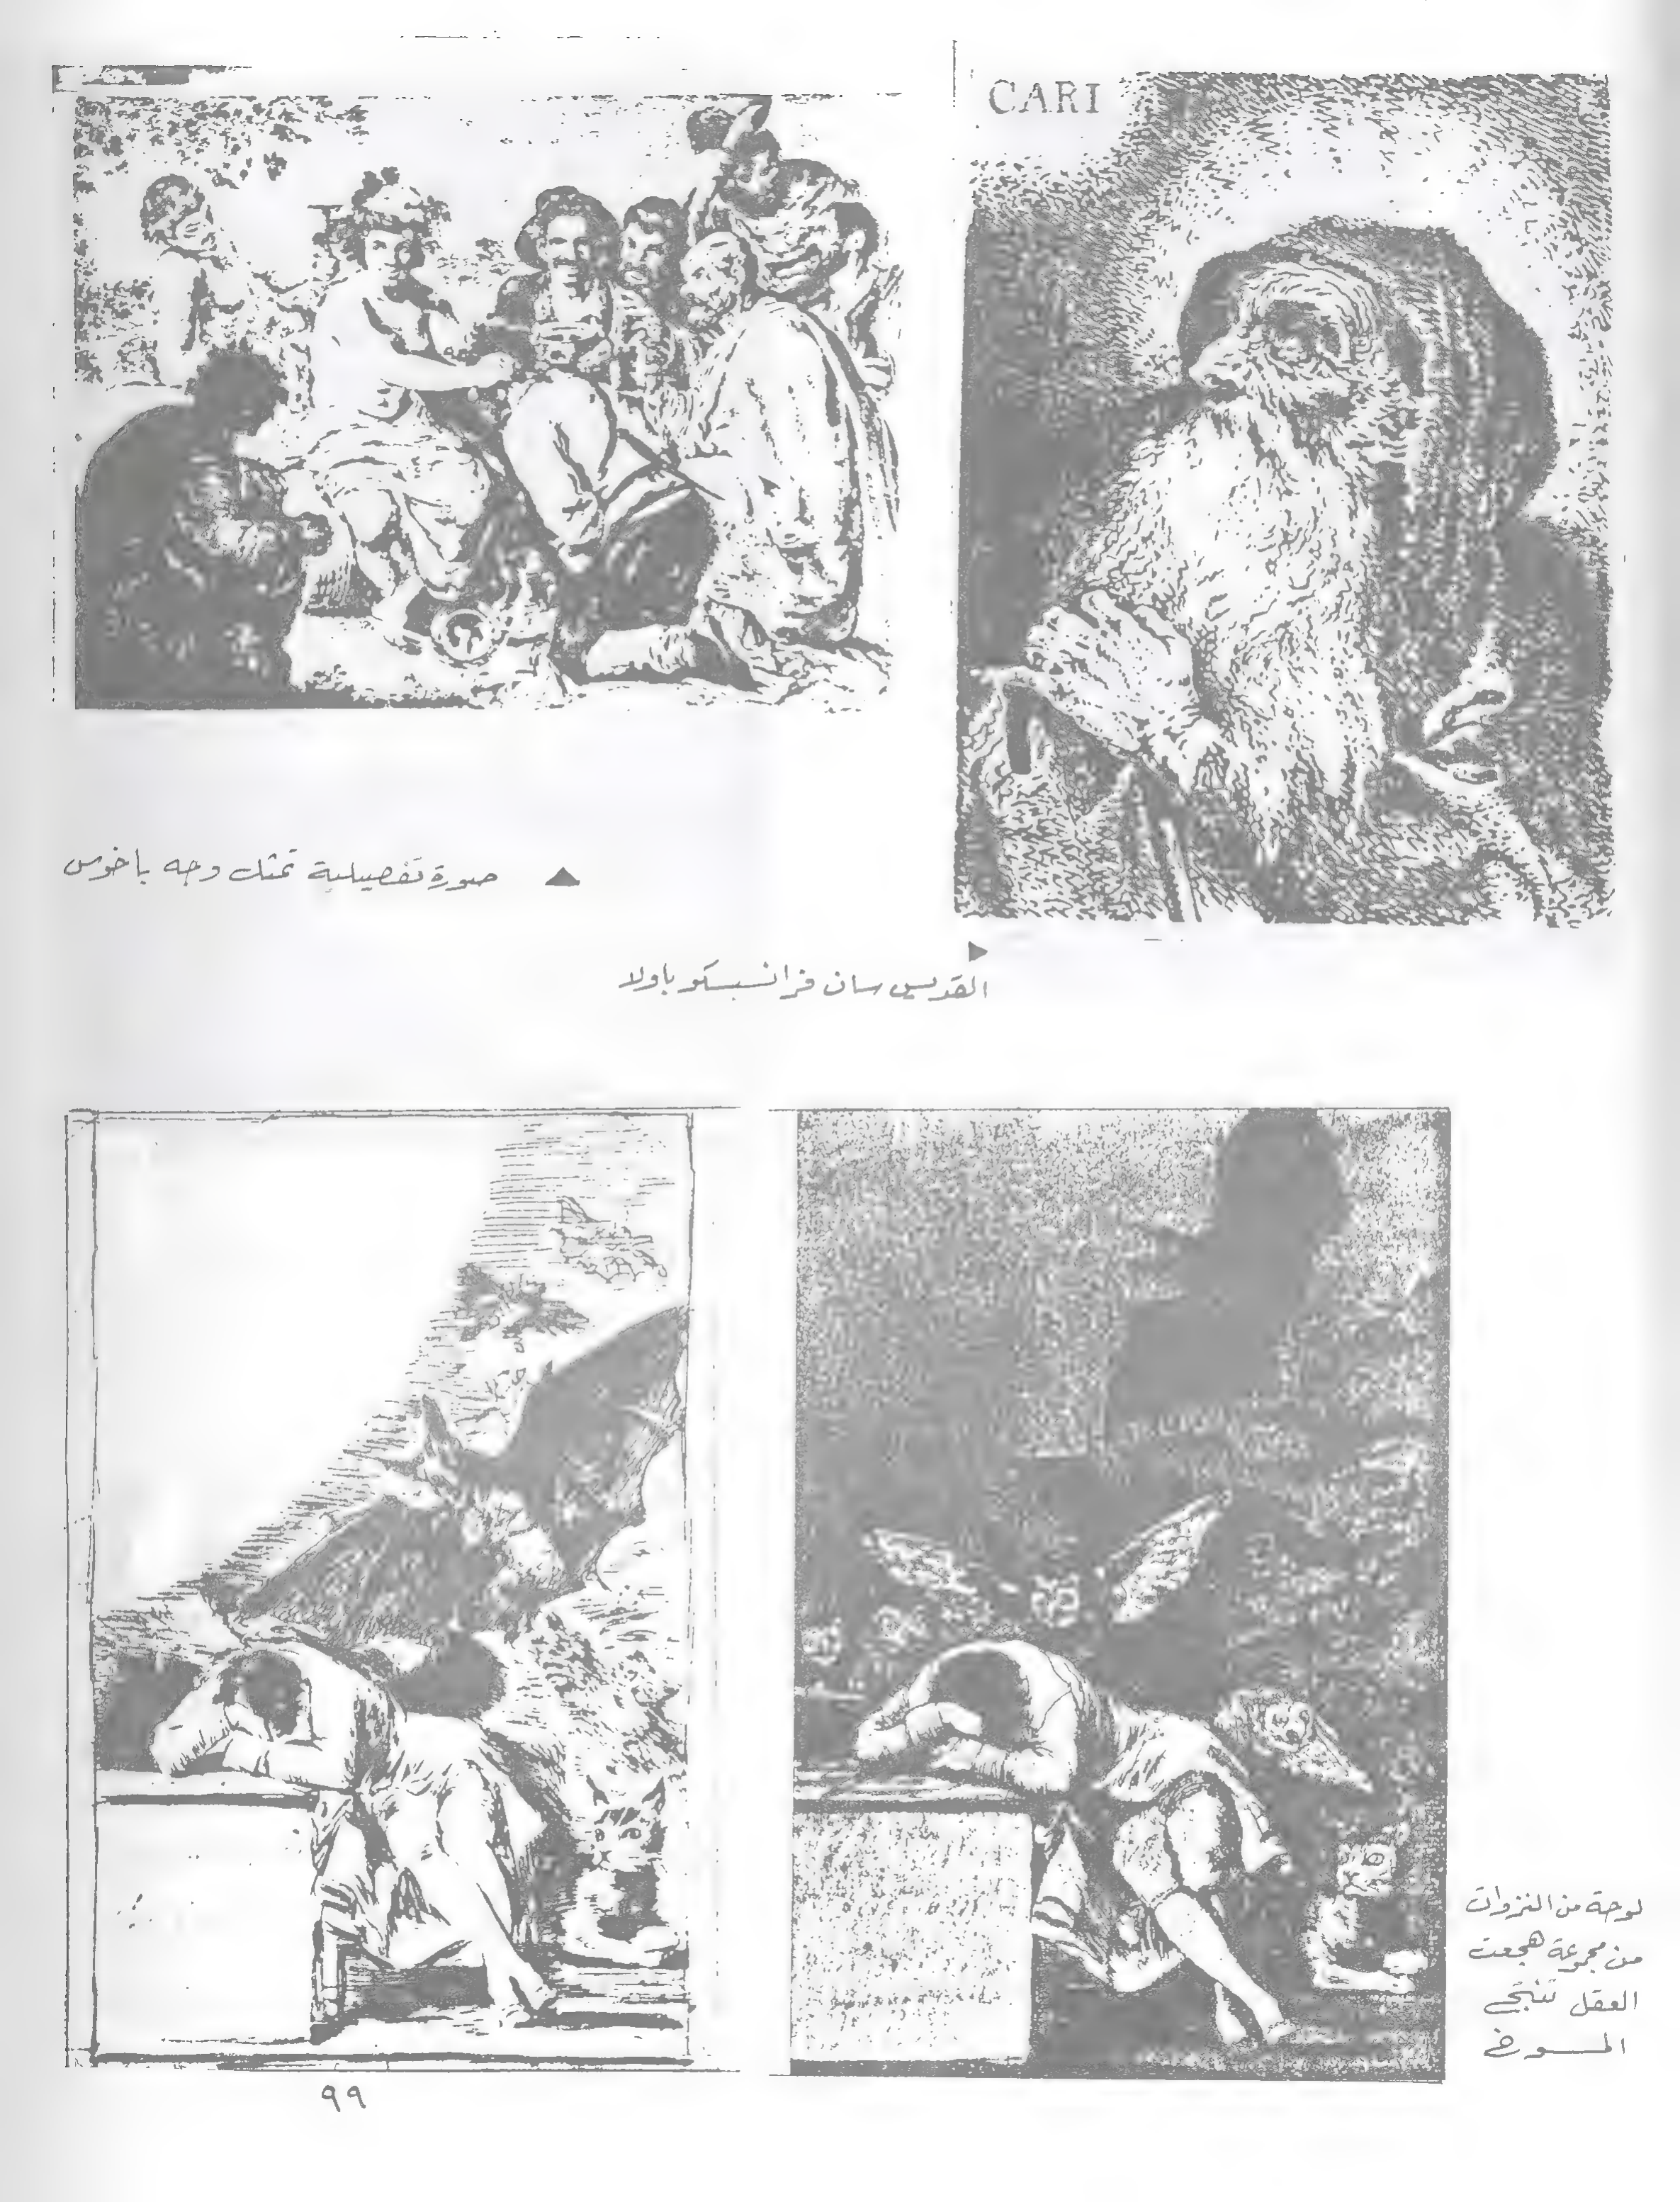 CARI
صورة تفصيلية تمثل وجه باخوس
القديس سان فرانسيسكو باولا
لوحة من النزوات
من مجموعة هجعت
العقل تنتج
المسوخ
٩٩